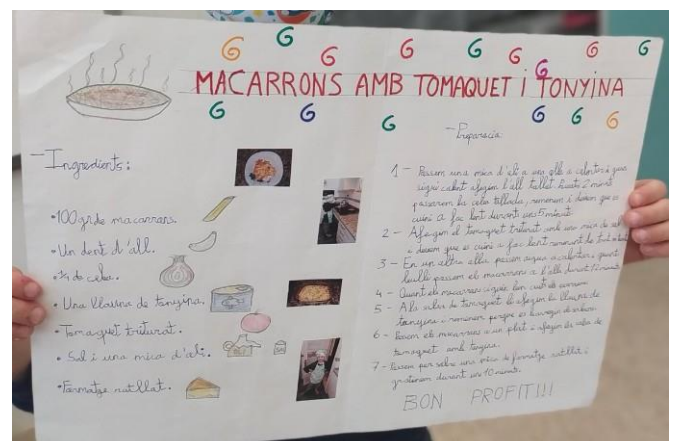 MACARRONS AMB TOMAQUET i TONYINA
- Ingredients:
• 100 gr de macarrons.
• Un dent d'all.
• 1/4 de ceba.
• Una llauna de tonyina.
• Tomaquet triturat.
• Sal i una mica d'oli.
• Formatge ratllat.
- Preparació
1 - Posem una mica d'oli a una olla a calentar i quan
sigui calent afegim l'all tallat. 2 minuts
posarem la ceba tallada, remenem i deixem que es
cuini a foc lent durant uns 5 minuts
2 - Afegim el tomaquet triturat amb una mica de sal
i deixem que es cuini a foc lent remenant de tant en tant
3 - En un altra olla posem aigua a calentar, quan
bulli posem els macarrons a l'olla durant minuts
4 - Quan els macarrons siguin ben cuits els
5 - A la salsa de tomaquet li afegim la llauna de
tonyina i remenem perque es
6 - Posem els macarrons a un plat i afegim la salsa de
tomaquet amb tonyina.
7 - Posem per sobre una mica de formatge ratllat i
gratinem durant uns 10 minuts.
BON PROFIT!!!